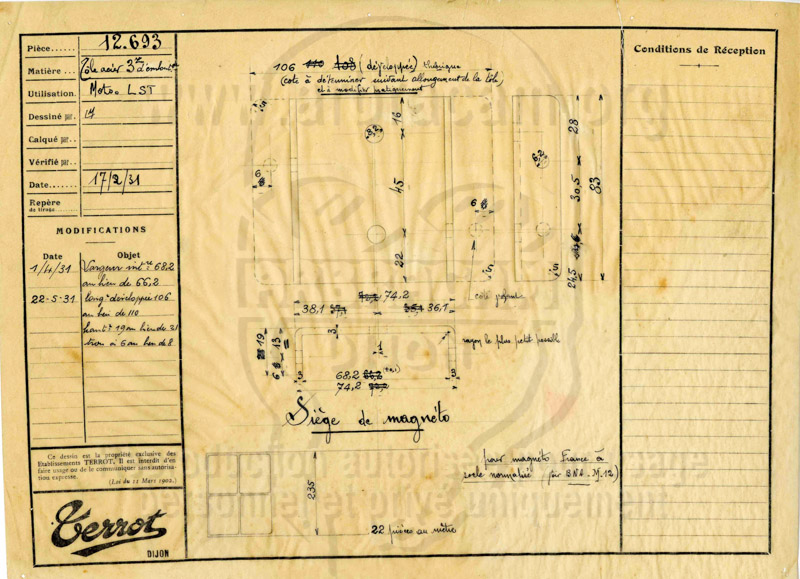 Pièce...... 12.693
Matière... Tôle acier 3
Utilisation. Moto. LST
Dessiné par.
Calqué par..
Vérifié par..
Date....... 17/2/31
Repère
de tirage
MODIFICATIONS
Date Objet
1/4/31 Largeur int.re 68,2
au lieu de 66,2
22-5-31. long.r développée 106
au lieu de 110
haut.r 19 au lieu de 21
trou à 6 au lieu de 8
Ce dessin est la propriété exclusive des
Etablissements TERROT. Il est interdit d'en
faire usage ou de le communiquer sans autorisa-
tion expresse.
(Loi du 12 Mars 1902.)
Terrot
DIJON
106 110 108 (développée) théorique
(cote à déterminer suivant allongement de la tôle)
et à modifier pratiquement
5
16
8,2
28
6,2
6
45
30,5
83
6
22
24,5
5
5
74,2
côté
38,1
36,1
19
13
3
rayon le plus petit possible
1
6
3
68,2
3
74,2
Siège de magnéto
235
22 pièces au mètre
pour magnéto France à
socle normalisé
Conditions de Réception